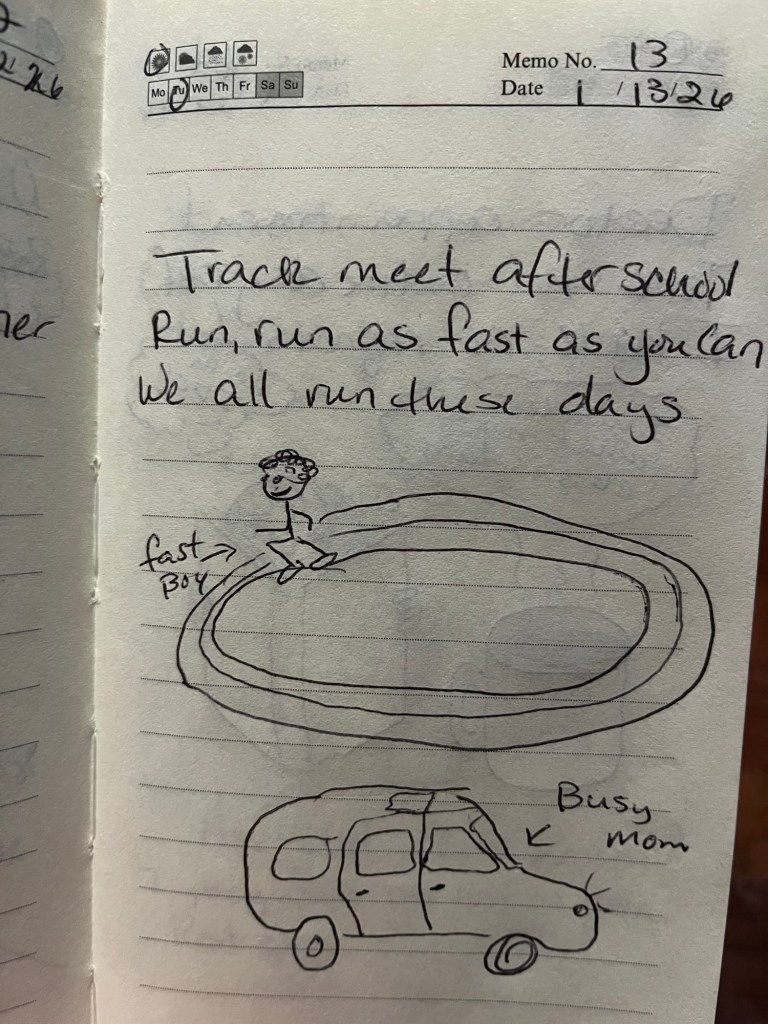 Memo No. 13
Mo Tu We Th Fr Sa Su
Date 1 / 13 / 26
Track meet after school
Run, run as fast as you can
We all run these days
fast
Boy
Busy
mom
ner